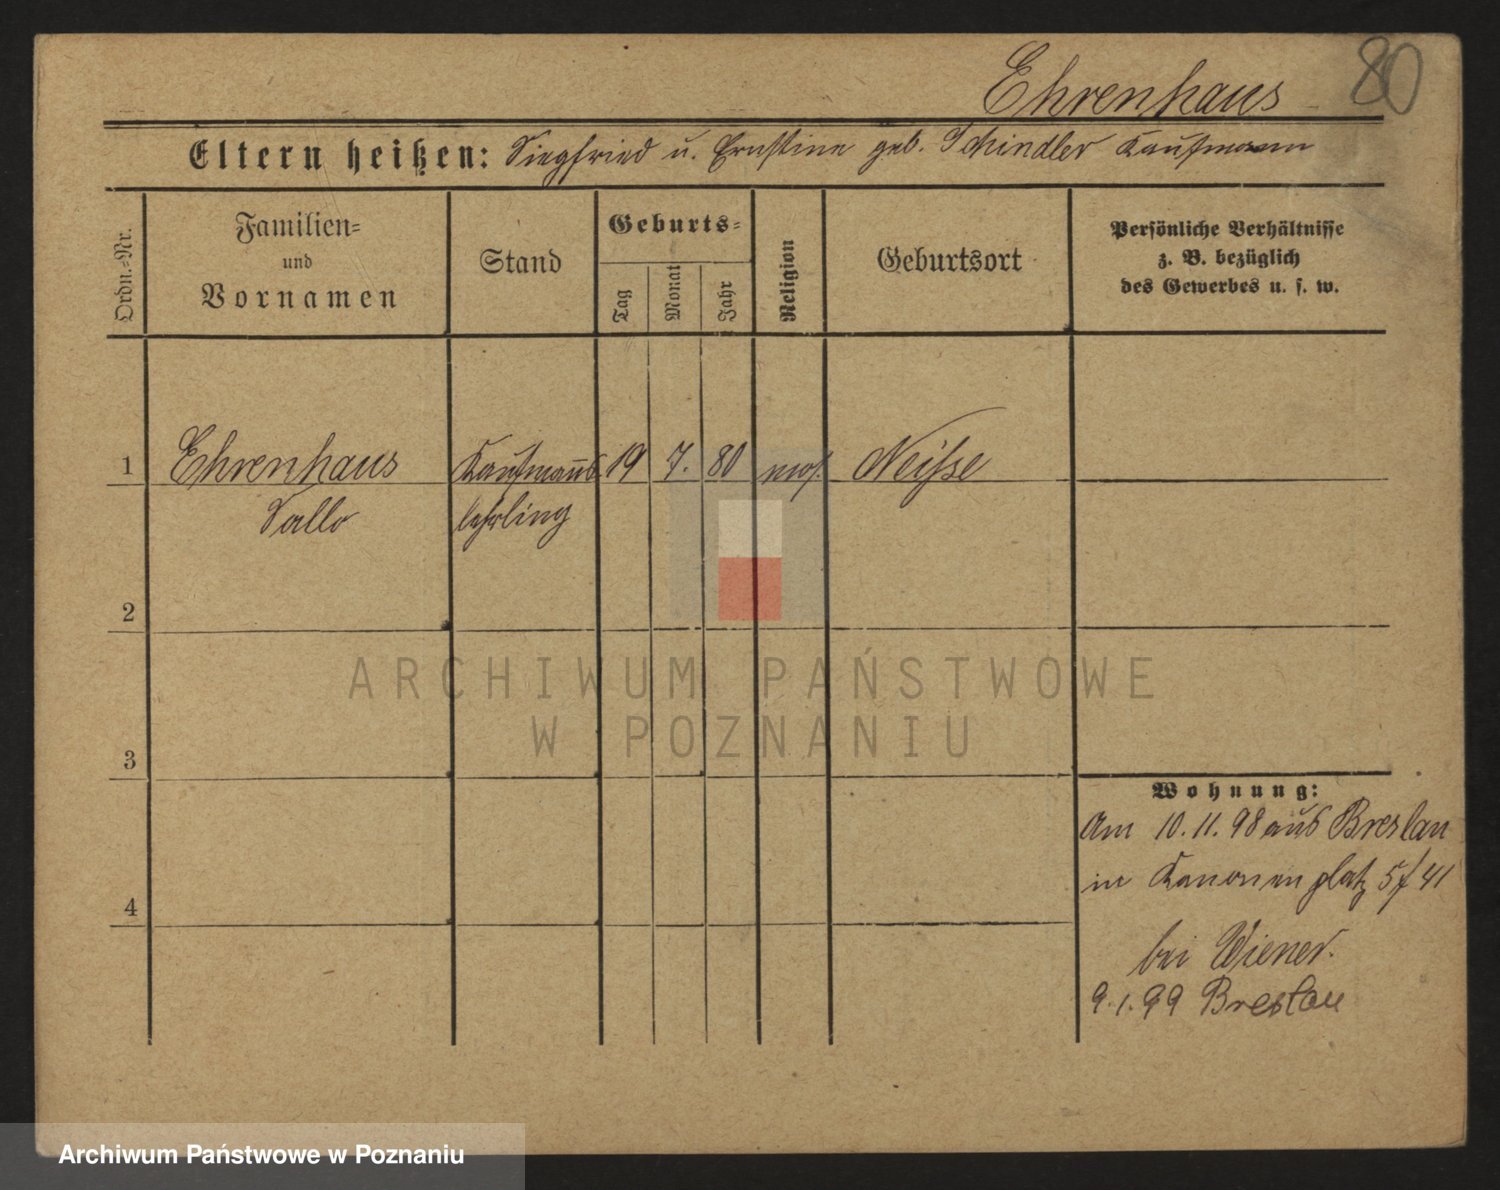 80
Ehrenhaus
Eltern heißen: Siegfried u. Ernstine geb. Schindler Kaufmann
Ordn.-Nr.
Familien-
und
Vornamen
Stand
Geburts-
Tag
Monat
Jahr
Religion
Geburtsort
Persönliche Verhältnisse
z. B. bezüglich
des Gewerbes u. s. w.
1 Ehrenhaus Kaufmanns 19 7. 80 mos. Neisse
Sallo lehrling
2
3
4
Wohnung:
Am 10.11.98 aus Breslau
in Kanonenplatz 5/41
bei Wiener.
9.1.99 Breslau
ARCHIWUM PAŃSTWOWE
W POZNANIU
Archiwum Państwowe w Poznaniu